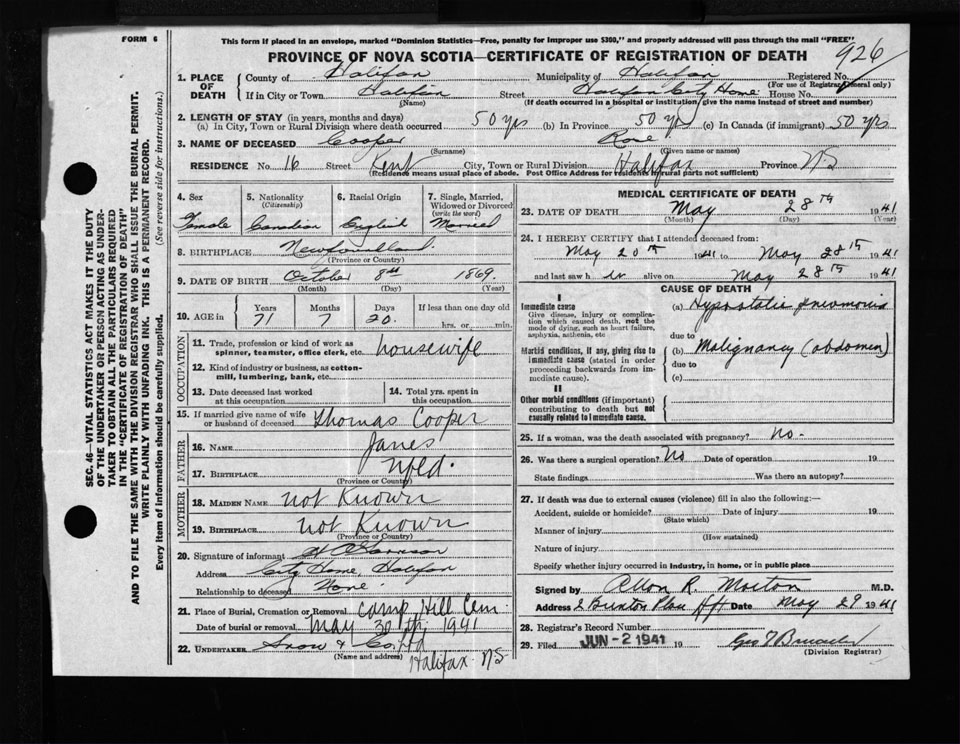 FORM 6
This form if placed in an envelope, marked "Dominion Statistics—Free, penalty for improper use $300," and properly addressed will pass through the mail "FREE"
PROVINCE OF NOVA SCOTIA—CERTIFICATE OF REGISTRATION OF DEATH
926
1. PLACE OF DEATH
County of Halifax Municipality of Halifax Registered No.
(For use of Registrar General only)
If in City or Town Halifax Street Halifax City Home House No.
(Name) (If death occurred in a hospital or institution, give the name instead of street and number)
2. LENGTH OF STAY (in years, months and days)
(a) In City, Town or Rural Division where death occurred 50 yrs (b) In Province 50 yrs (c) In Canada (if immigrant) 50 yrs
3. NAME OF DECEASED Cooper Rose
(Surname) (Given name or names)
RESIDENCE No. 16 Street Kent City, Town or Rural Division Halifax Province NS
(Residence means usual place of abode. Post Office Address for residents in rural parts not sufficient)
4. Sex
Female
5. Nationality
(Citizenship)
Canadian
6. Racial Origin
English
7. Single, Married, Widowed or Divorced
(write the word)
Married
8. BIRTHPLACE Newfoundland
(Province or Country)
9. DATE OF BIRTH October 8th 1869
(Month) (Day) (Year)
10. AGE in
Years Months Days If less than one day old
71 7 20 hrs. or min.
OCCUPATION
11. Trade, profession or kind of work as spinner, teamster, office clerk, etc. housewife
12. Kind of industry or business, as cotton-mill, lumbering, bank, etc.
13. Date deceased last worked at this occupation
14. Total yrs. spent in this occupation
15. If married give name of wife or husband of deceased Thomas Cooper
FATHER
16. NAME Janes
17. BIRTHPLACE Nfld.
(Province or Country)
MOTHER
18. MAIDEN NAME not Known
19. BIRTHPLACE not Known
(Province or Country)
20. Signature of informant
Address City Home, Halifax
Relationship to deceased None.
21. Place of Burial, Cremation or Removal Camp Hill Cem.
Date of burial or removal May 30th 1941
22. UNDERTAKER Snow & Co Ltd
(Name and address) Halifax NS
MEDICAL CERTIFICATE OF DEATH
23. DATE OF DEATH May 28th 1941
(Month) (Day) (Year)
24. I HEREBY CERTIFY that I attended deceased from:
May 20th 1941 to May 28th 1941
and last saw h er alive on May 28th 1941
CAUSE OF DEATH
I
Immediate cause
Give disease, injury or complication which caused death, not the mode of dying, such as heart failure, asphyxia, asthenia, etc
(a) Hypostatic pneumonia
due to
Morbid conditions, if any, giving rise to immediate cause (stated in order proceeding backwards from immediate cause).
(b) Malignancy (abdomen)
due to
(c)
II
Other morbid conditions (if important) contributing to death but not causally related to immediate cause.
25. If a woman, was the death associated with pregnancy? No.
26. Was there a surgical operation? No Date of operation 19
State findings Was there an autopsy?
27. If death was due to external causes (violence) fill in also the following:—
Accident, suicide or homicide? Date of injury 19
(State which)
Manner of injury
(How sustained)
Nature of injury
Specify whether injury occurred in industry, in home, or in public place
Signed by Allan R. Morton M.D.
Address Date May 29 1941
28. Registrar's Record Number
29. Filed JUN - 2 1941 19
(Division Registrar)
SEC. 46—VITAL STATISTICS ACT MAKES IT THE DUTY
OF THE UNDERTAKER OR PERSON ACTING AS UNDER-
TAKER TO OBTAIN ALL THE PARTICULARS REQUIRED
IN THE "CERTIFICATE OF REGISTRATION OF DEATH"
AND TO FILE THE SAME WITH THE DIVISION REGISTRAR WHO SHALL ISSUE THE BURIAL PERMIT.
WRITE PLAINLY WITH UNFADING INK. THIS IS A PERMANENT RECORD.
Every item of information should be carefully supplied. (See reverse side for instructions.)